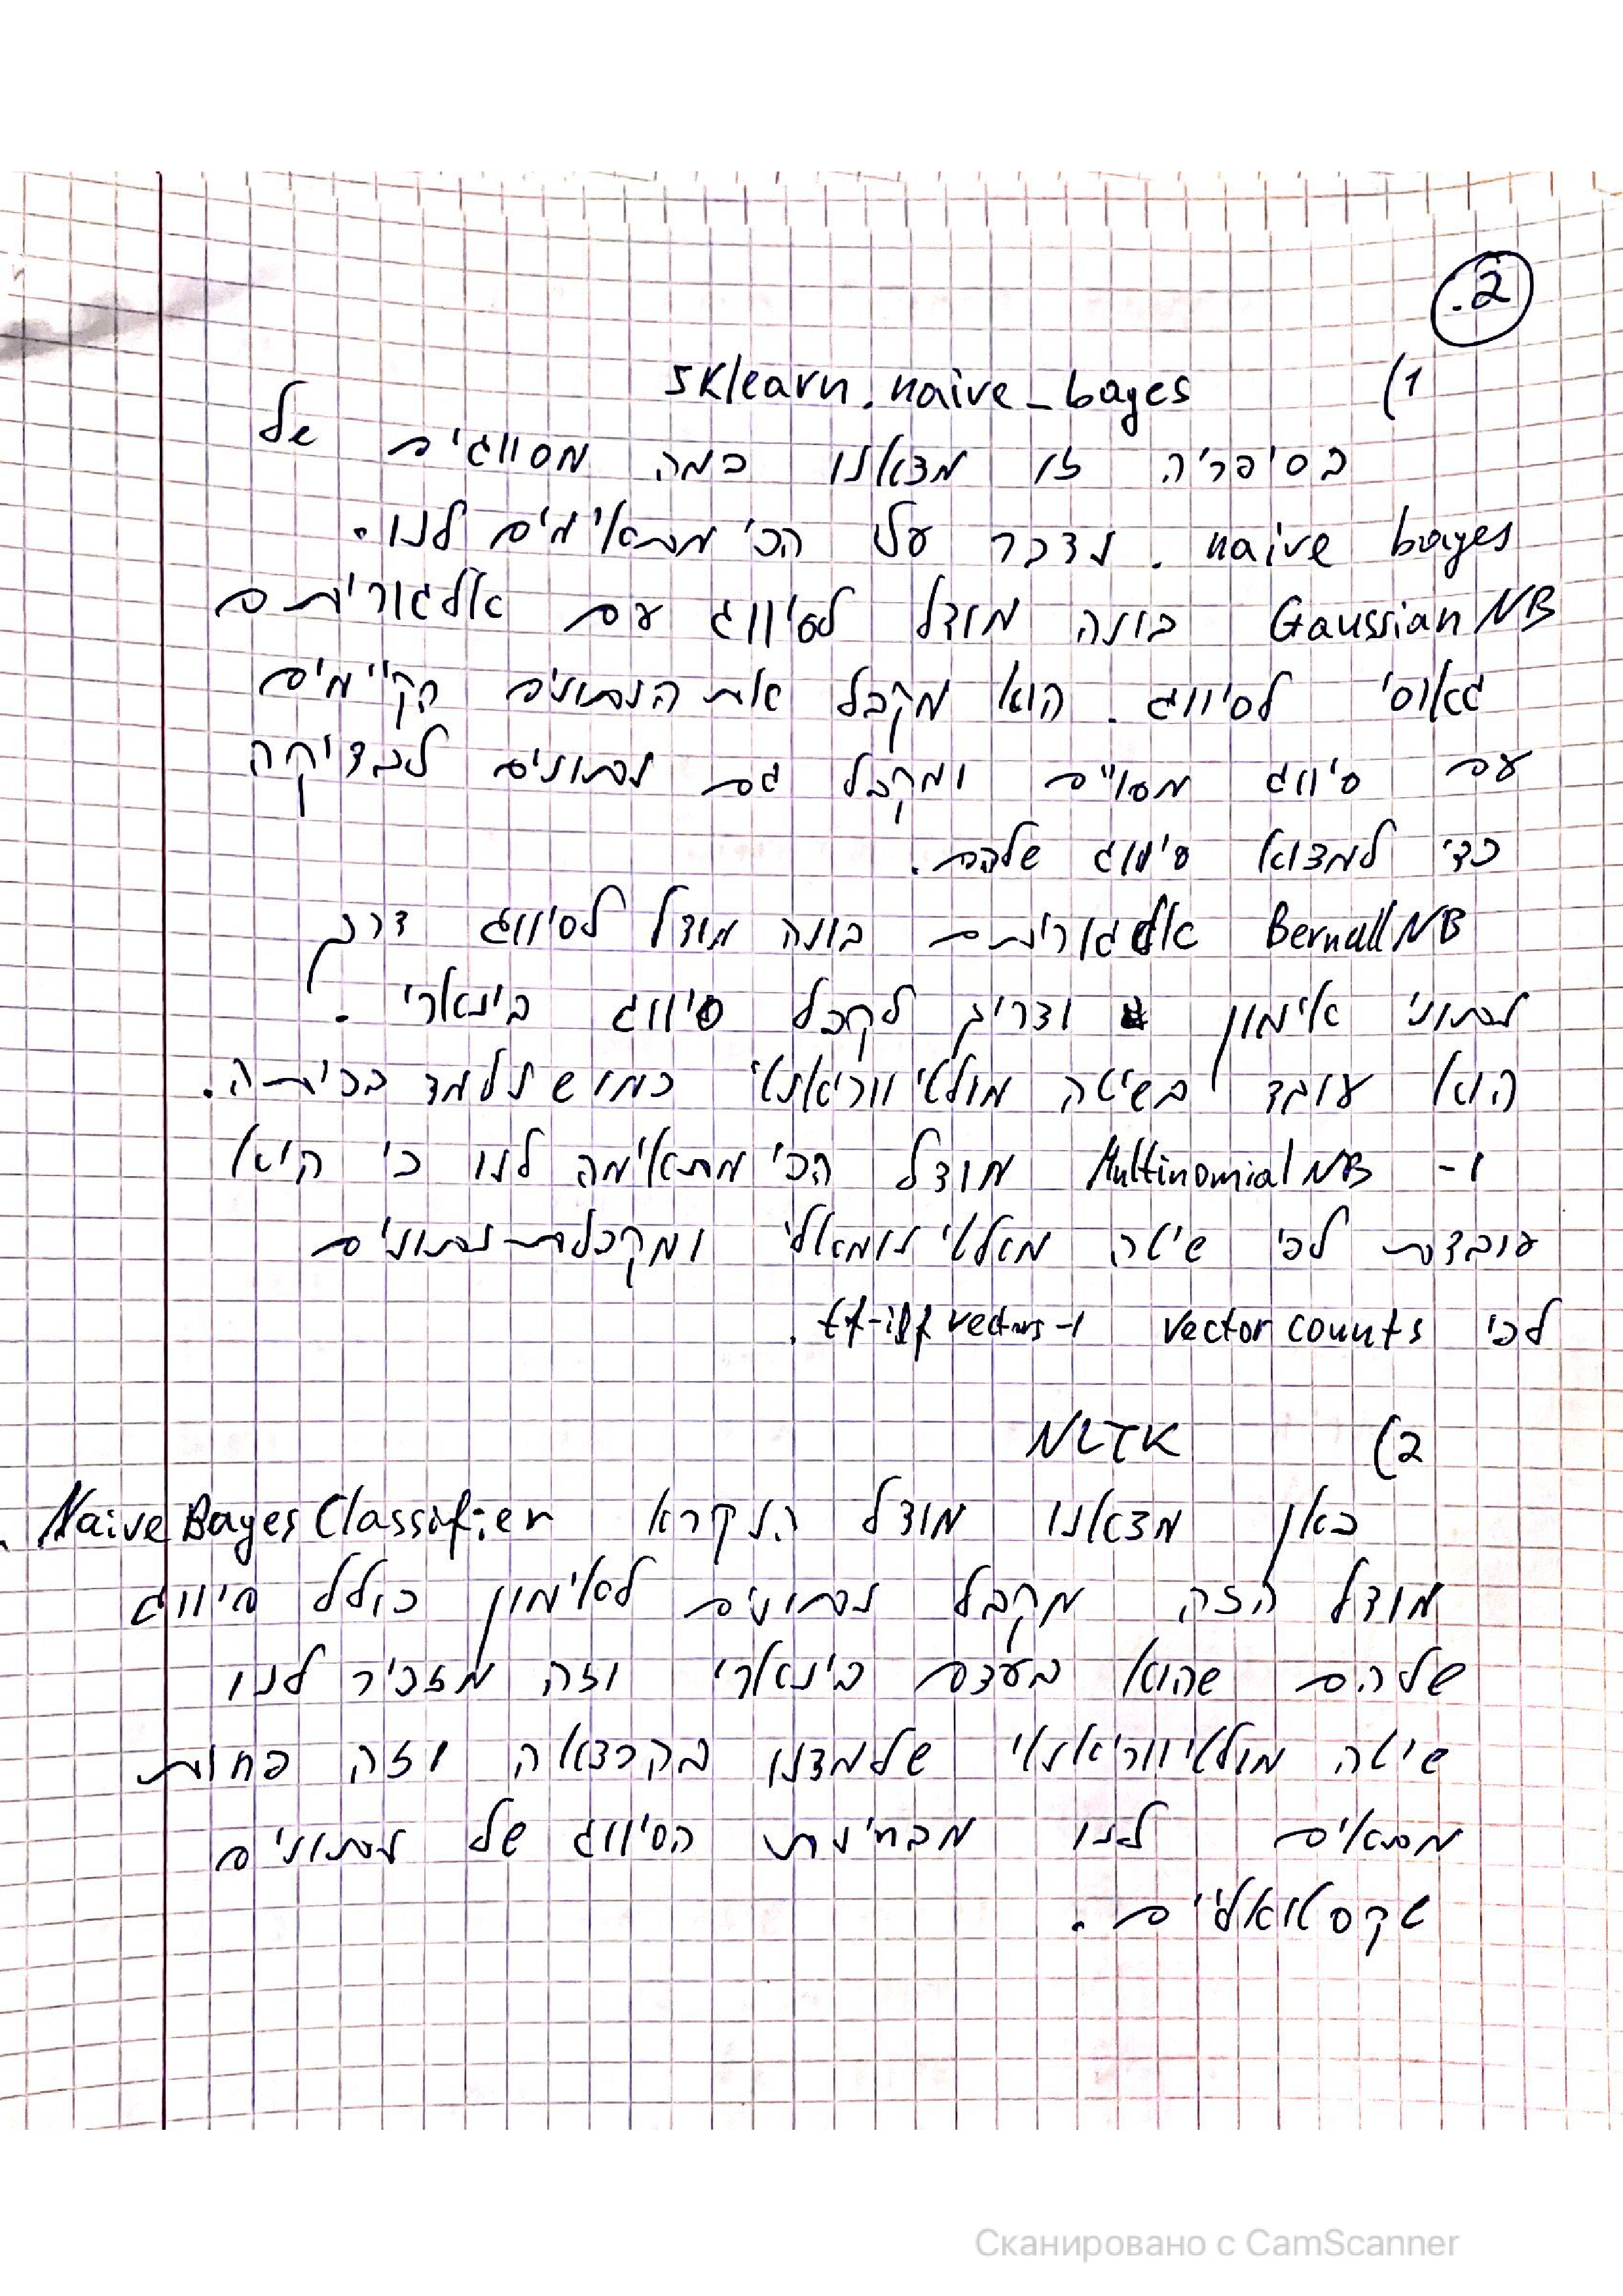 2.
1) sklearn.naive_bayes
בסיפריה זו מצאנו כמה מסווגים של
naive bayes. נדבר על הכי מתאימים לנו.
GaussianNB בונה מודל לסיווג עם אלגוריתם
גאוסי לסיווג. הוא מקבל את הנתונים הקיימים
עם סיווג מסויים ומקבל גם נתונים לבדיקה
כדי למצוא סיווג שלהם.
BernullNB אלגוריתם בונה מודל לסיווג דרך
נתוני אימון וצריך לקבל סיווג בינארי.
הוא עובד בשיטה מולטיווריאנטי כמו שנלמד בכיתה.
ו- MultinomialNB מודל הכי מתאימה לנו כי היא
עובדת לפי שיטה מאלטינומאלי ומקבלת נתונים
לפי vector counts ו-tf-idf vectors.
2) NLTK
כאן מצאנו מודל הנקרא NaiveBayesClassifier.
מודל הזה מקבל נתונים לאימון כולל סיווג
שלהם שהוא בעצם בינארי וזה מזכיר לנו
שיטה מולטיווריאנטי שלמדנו בהרצאה וזה פחות
מתאים לנו מבחינת הסיווג של נתונים
טקסטואליים.
Сканировано с CamScanner